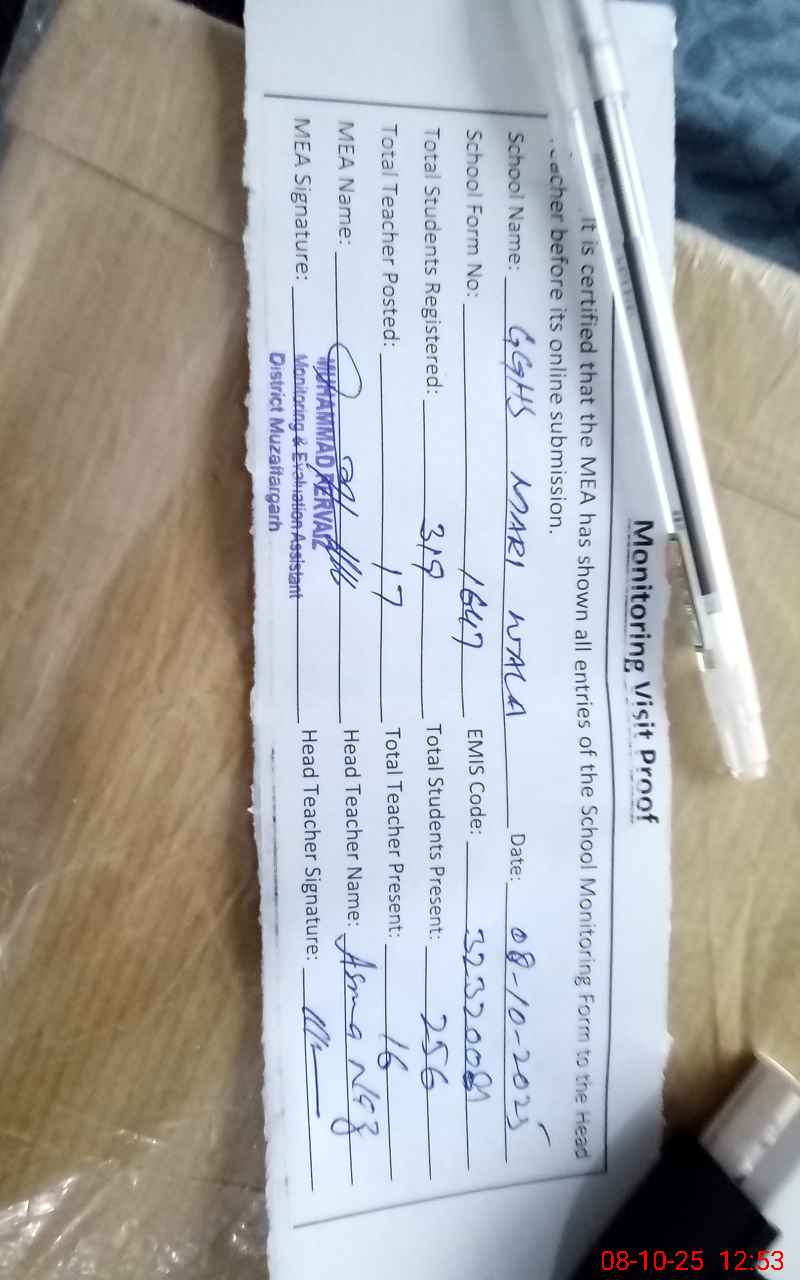 Monitoring Visit Proof
It is certified that the MEA has shown all entries of the School Monitoring Form to the Head
Teacher before its online submission.
School Name: GGHS MARI WALA Date: 08-10-2025
School Form No: 1647 EMIS Code: 32320081
Total Students Registered: 319 Total Students Present: 256
Total Teacher Posted: 17 Total Teacher Present: 16
MEA Name: Head Teacher Name: Asma
MEA Signature: Head Teacher Signature:
MUHAMMAD PERVAIZ
Monitoring & Evaluation Assistant
District Muzaffargarh
08-10-25 12:53